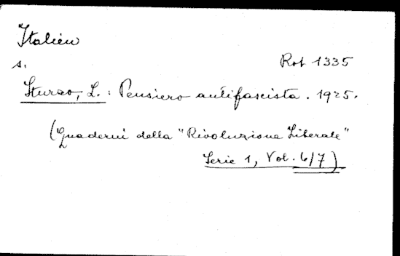 Italien
s. Rot 1335
Sturzo, L.: Pensiero antifascista. 1925.
(Quaderni della "Rivoluzione Liberale"
Serie 1, Vol. 6/7)